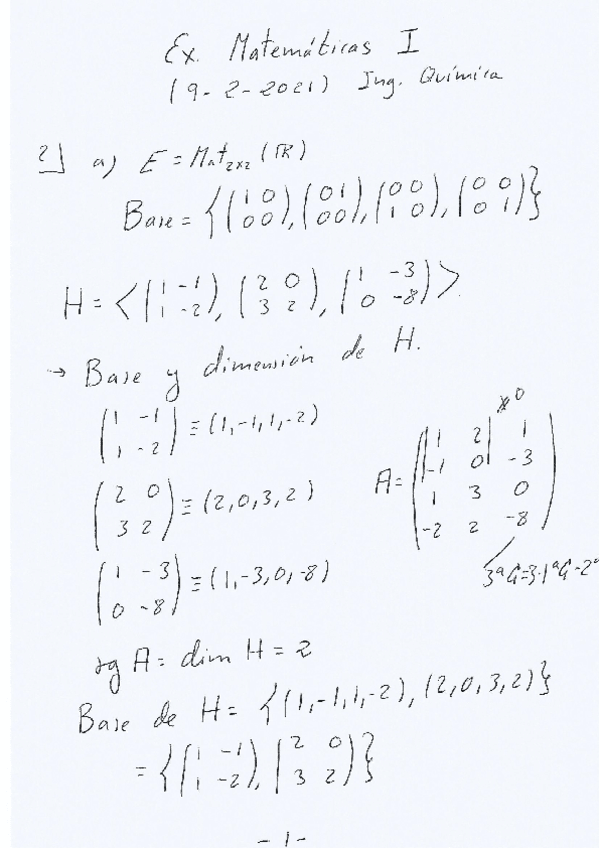 Ex. Matemáticas I
(9-2-2021) Ing. Química
2] a) E = Mat₂ₓ₂ (ℝ)
Base = {(1 0; 0 0), (0 1; 0 0), (0 0; 1 0), (0 0; 0 1)}
H = <(1 -1; 1 -2), (2 0; 3 2), (1 -3; 0 -8)>
→ Base y dimensión de H.
(1 -1; 1 -2) ≡ (1,-1,1,-2)
(2 0; 3 2) ≡ (2,0,3,2)
(1 -3; 0 -8) ≡ (1,-3,0,-8)
≠0
A = (1 2 1; -1 0 -3; 1 3 0; -2 2 -8)
3ªC=3·1ªC-2ª
rg A = dim H = 2
Base de H = {(1,-1,1,-2), (2,0,3,2)}
= {(1 -1; 1 -2), (2 0; 3 2)}
-1-